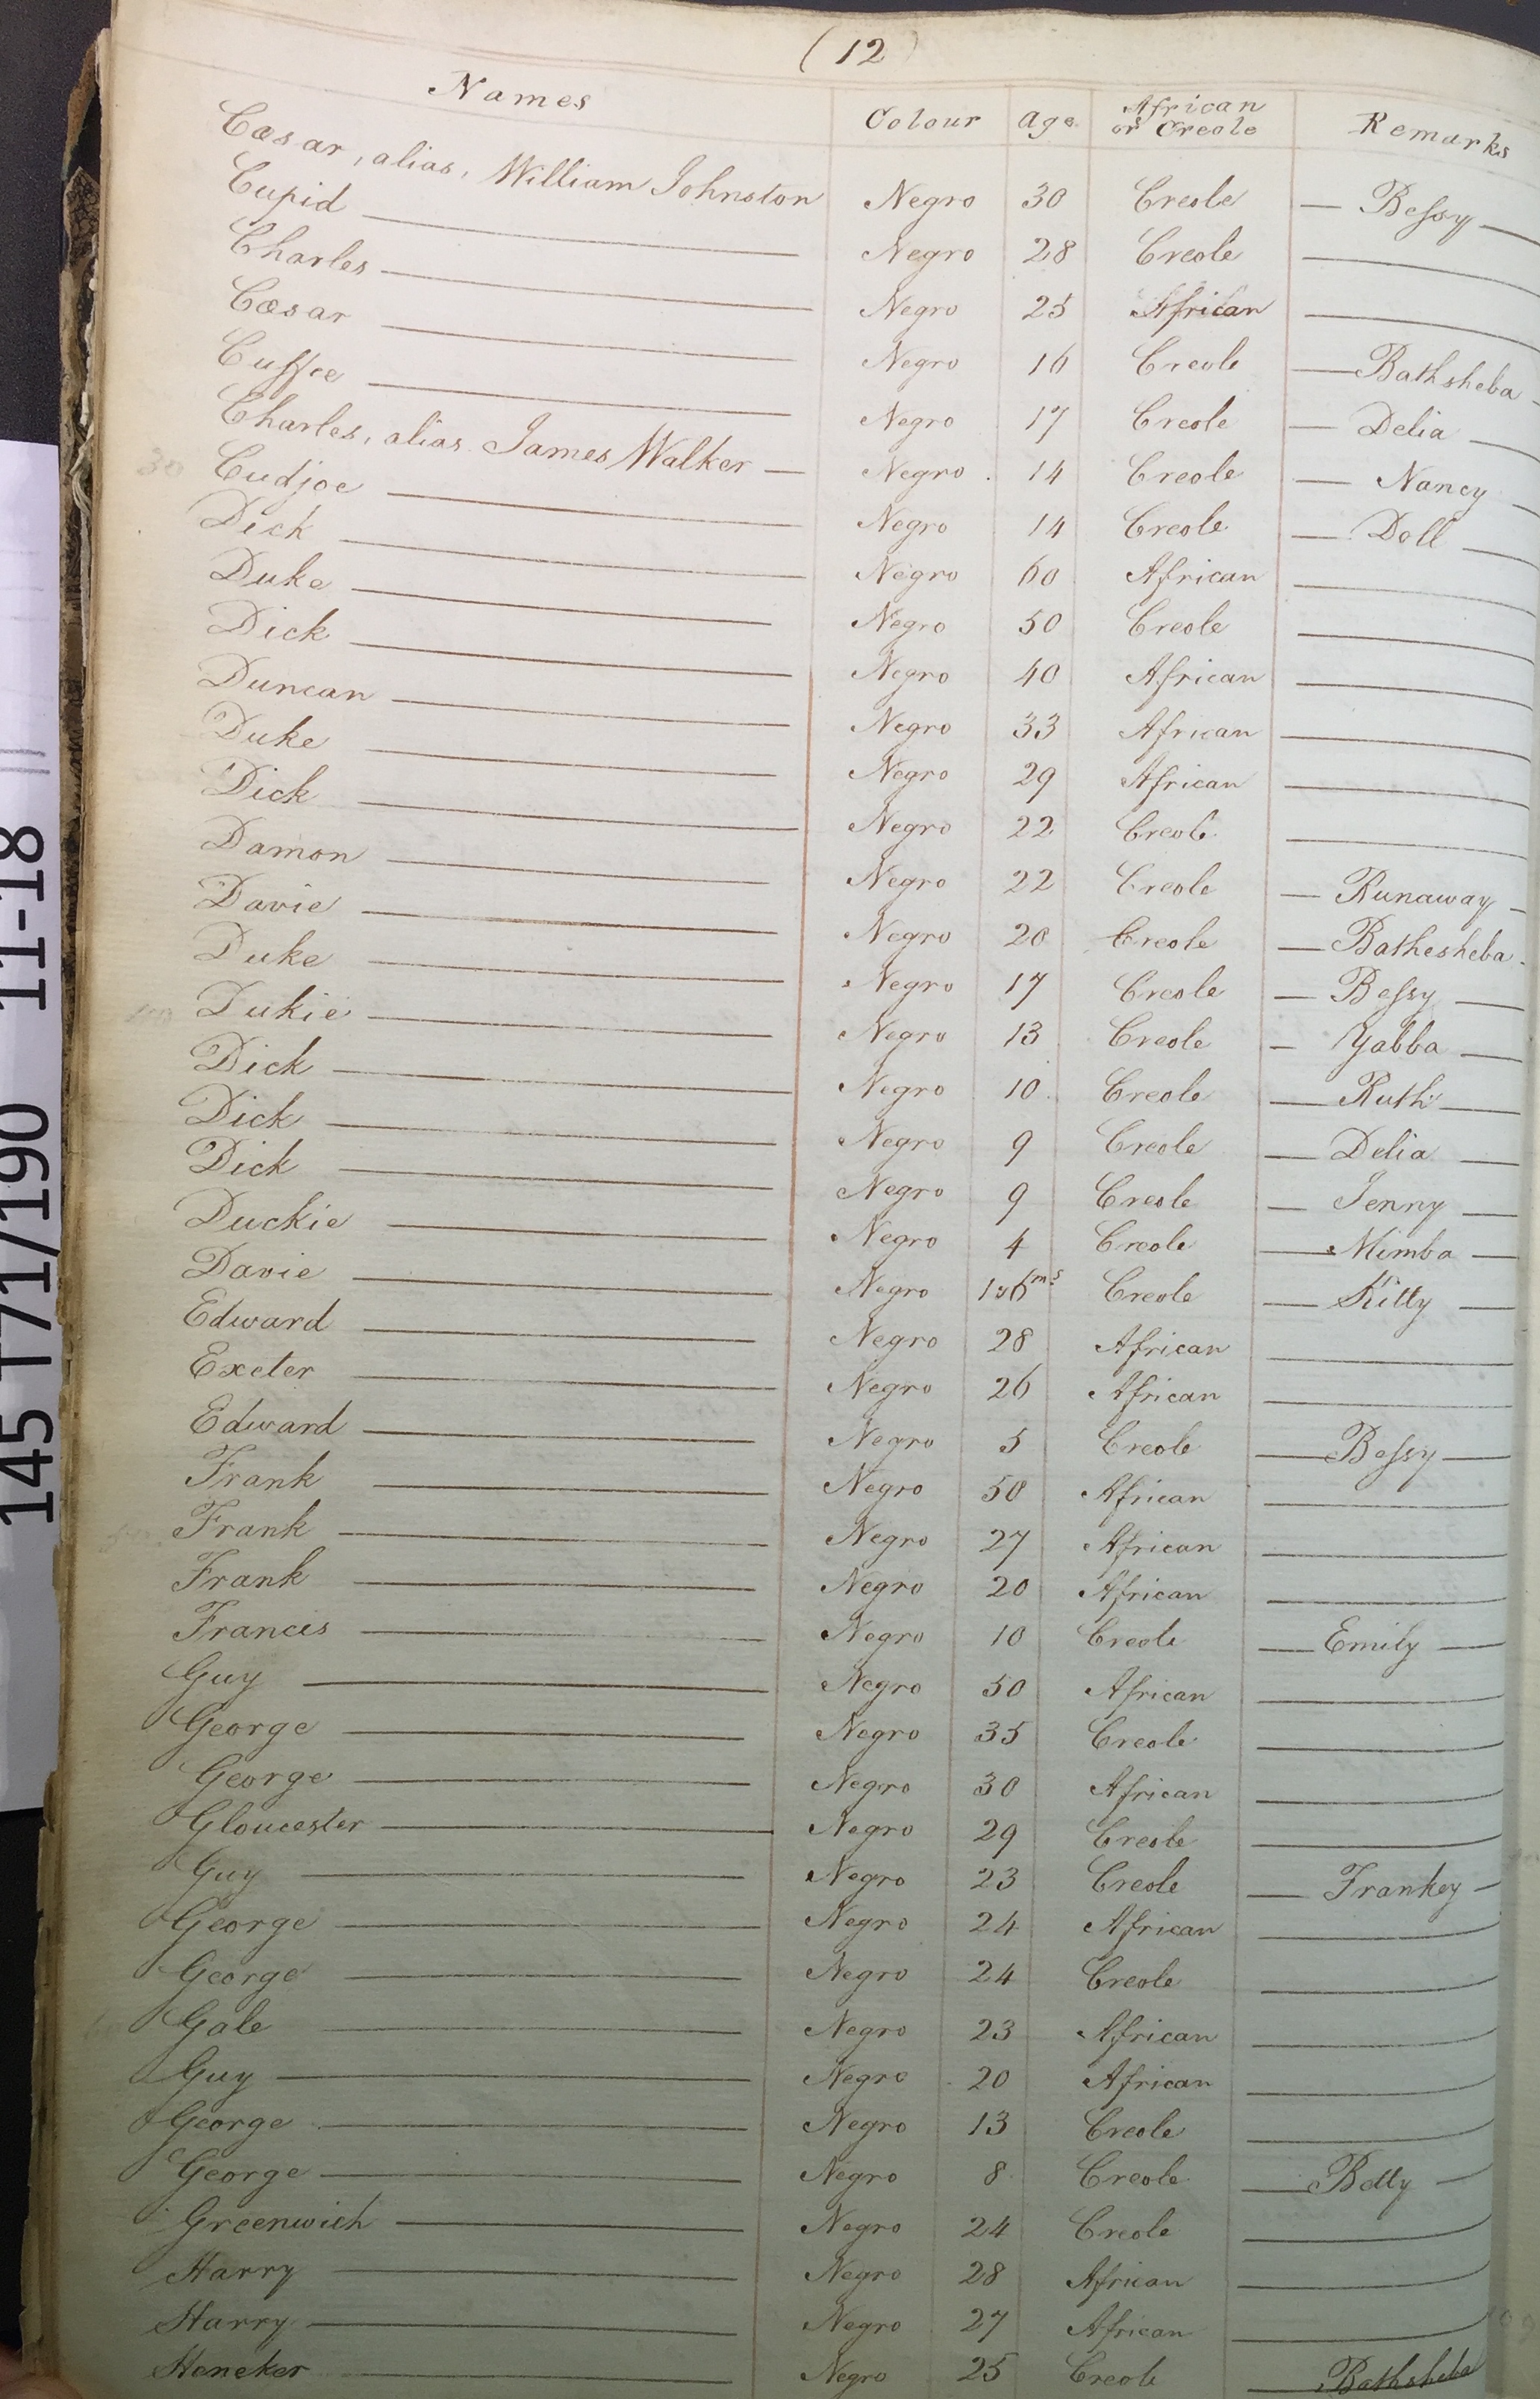 (12)
Names Colour Age African or Creole Remarks
Cæsar, alias, William Johnston Negro 30 Creole — Bessy —
Cupid — Negro 28 Creole —
Charles — Negro 25 African —
Cæsar — Negro 16 Creole — Bathsheba —
Cuffee — Negro 17 Creole — Delia —
Charles, alias James Walker — Negro 14 Creole — Nancy —
30 Cudjoe — Negro 14 Creole — Doll —
Dick — Negro 60 African —
Duke — Negro 50 Creole —
Dick — Negro 40 African —
Duncan — Negro 33 African —
Duke — Negro 29 African —
Dick — Negro 22 Creole —
Damon — Negro 22 Creole — Runaway —
Davie — Negro 20 Creole — Bathesheba —
Duke — Negro 17 Creole — Bessy —
Dukie — Negro 13 Creole — Yabba —
Dick — Negro 10 Creole — Ruth —
Dick — Negro 9 Creole — Delia —
Dick — Negro 9 Creole — Jenny —
Duckie — Negro 4 Creole — Mimba —
Davie — Negro Creole — Kitty —
Edward — Negro 28 African —
Exeter — Negro 26 African —
Edward — Negro 5 Creole — Bessy —
Frank — Negro 50 African —
Frank — Negro 27 African —
Frank — Negro 20 African —
Francis — Negro 10 Creole — Emily —
Guy — Negro 50 African —
George — Negro 35 Creole —
George — Negro 30 African —
Gloucester — Negro 29 Creole —
Guy — Negro 23 Creole — Frankey —
George — Negro 24 African —
George — Negro 24 Creole —
Gale — Negro 23 African —
Guy — Negro 20 African —
George — Negro 13 Creole —
George — Negro 8 Creole — Betty —
Greenwich — Negro 24 Creole —
Harry — Negro 28 African —
Harry — Negro 27 African —
Heneker — Negro 25 Creole — Bathsheba
145 T71/190 11-18